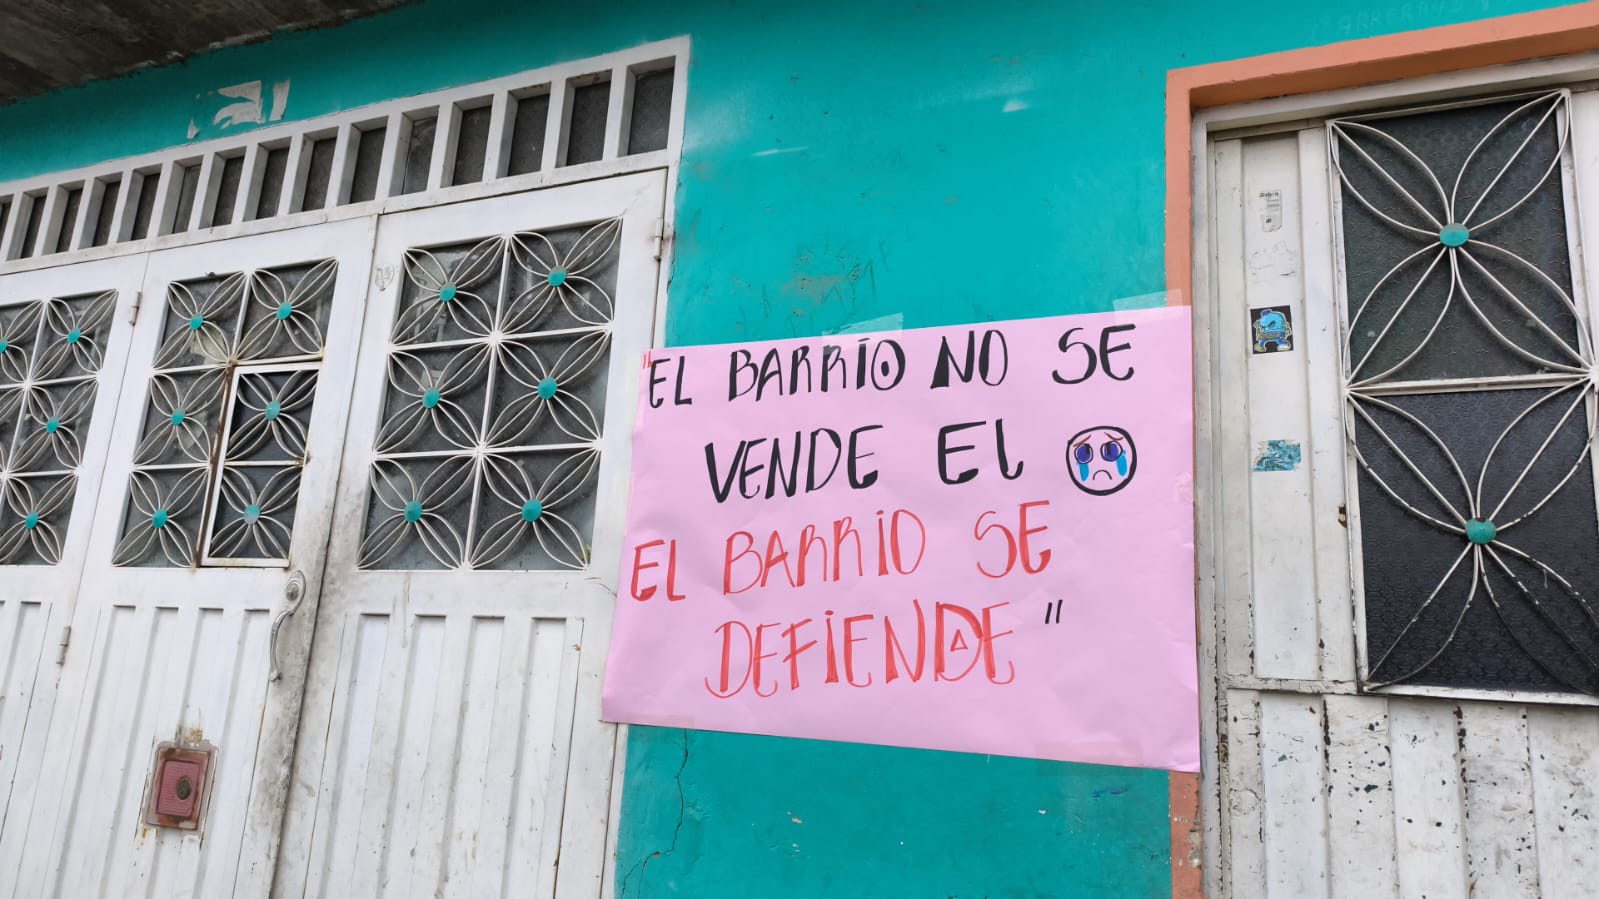 "EL BARRIO NO SE
VENDE EL
EL BARRIO SE
DEFIENDE"